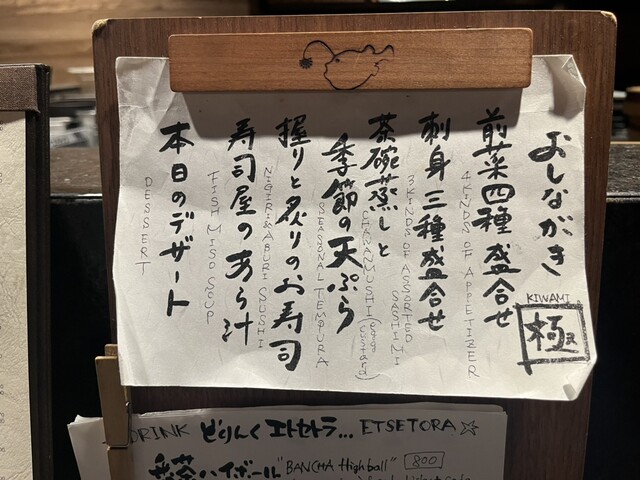 おしながき
KIWAMI
極
前菜四種盛合せ
4 KINDS OF APPETIZER
刺身三種盛合せ
3 KINDS OF ASSORTED
SASHIMI
茶碗蒸しと
CHAWANMUSHI (egg custard)
季節の天ぷら
SEASONAL TEMPURA
握りと炙りのお寿司
NIGIRI & ABURI SUSHI
寿司屋のあら汁
FISH MISO SOUP
本日のデザート
DESSERT
DRINK どりんく エトセトラ... ETSETORA ☆
番茶ハイボール "BANCHA Highball" 800